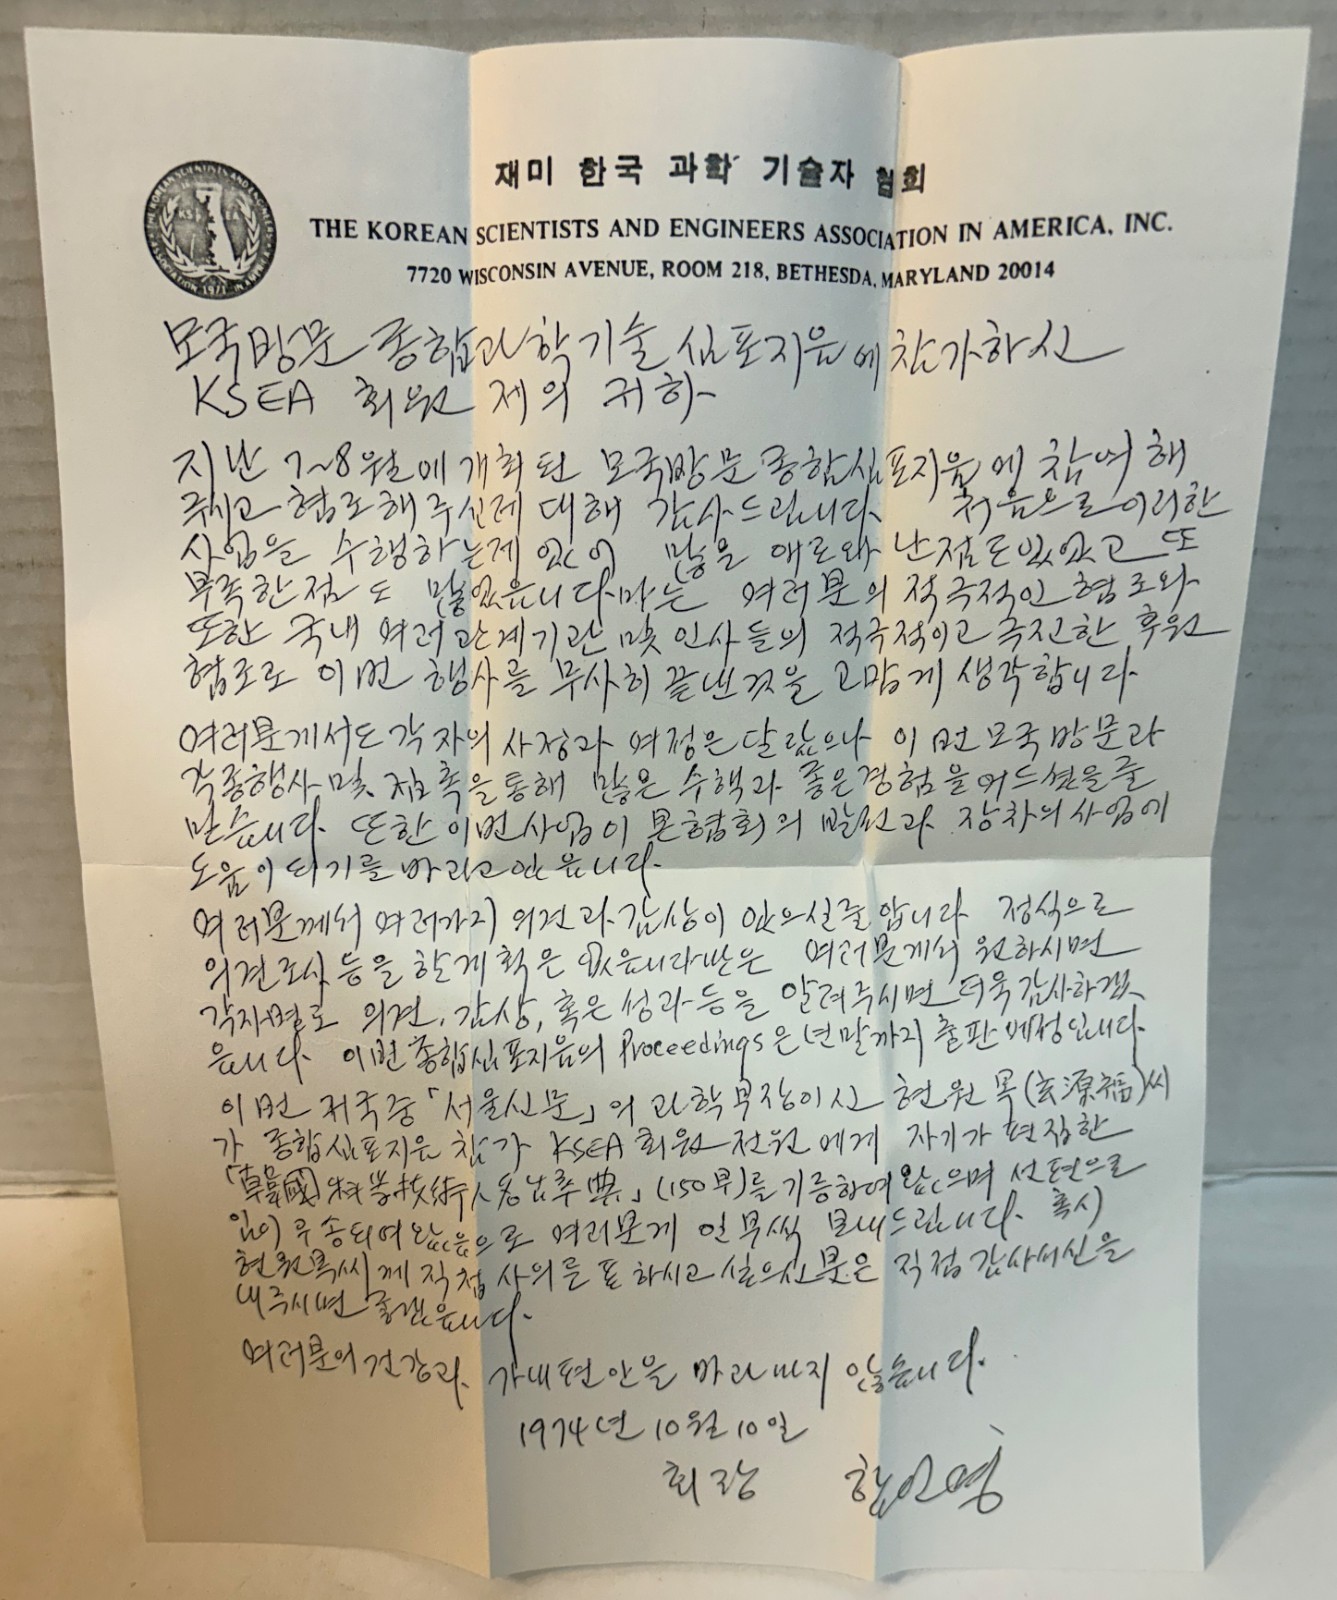 재미 한국 과학 기술자 협회
THE KOREAN SCIENTISTS AND ENGINEERS ASSOCIATION IN AMERICA, INC.
7720 WISCONSIN AVENUE, ROOM 218, BETHESDA, MARYLAND 20014
모국방문 종합과학기술 심포지움에 참가하신
KSEA 회원 제의 귀하
지난 7~8월에 개최된 모국방문 종합심포지움에 참여해
주시고 협조해 주신데 대해 감사드립니다. 처음으로 이러한
사업을 수행하는데 있어 많은 애로와 난점도 있었고 또
부족한 점도 많았읍니다마는 여러분의 적극적인 협조와
또한 국내 여러 관계기관 및 인사들의 적극적이고 극진한 후원
협조로 이번 행사를 무사히 끝낸것을 고맙게 생각합니다.
여러분께서도 각자의 사정과 여정은 달랐으나 이번 모국방문과
각종행사 및 접촉을 통해 많은 수확과 좋은 경험을 얻으셨을줄
믿습니다. 또한 이번사업이 본협회의 발전과 장차의 사업에
도움이 되기를 바라고 있읍니다.
여러분께서 여러가지 의견과 감상이 있으실줄 압니다. 정식으로
의견조사 등을 할 계획은 없읍니다만은 여러분께서 원하시면
각자별로 의견, 감상, 혹은 성과 등을 알려주시면 더욱 감사하겠
읍니다. 이번 종합심포지움의 Proceedings은 년말까지 출판 예정입니다.
이번 귀국중 「서울신문」의 과학부장이신 현원복(玄源福)씨
가 종합심포지움 참가 KSEA 회원 전원에게 자기가 편집한
「韓國科学技術人名辞典」(150부)를 기증하여 왔으며 선편으로
우송되여 왔음으로 여러분께 일부씩 보내드립니다. 혹시
현원복씨께 직접 사의를 표하시고 싶으신 분은 직접 감사서신을
내주시면 좋겠읍니다.
여러분의 건강과 가내 편안을 바라마지 않습니다.
1974년 10월 10일
회장 함인영